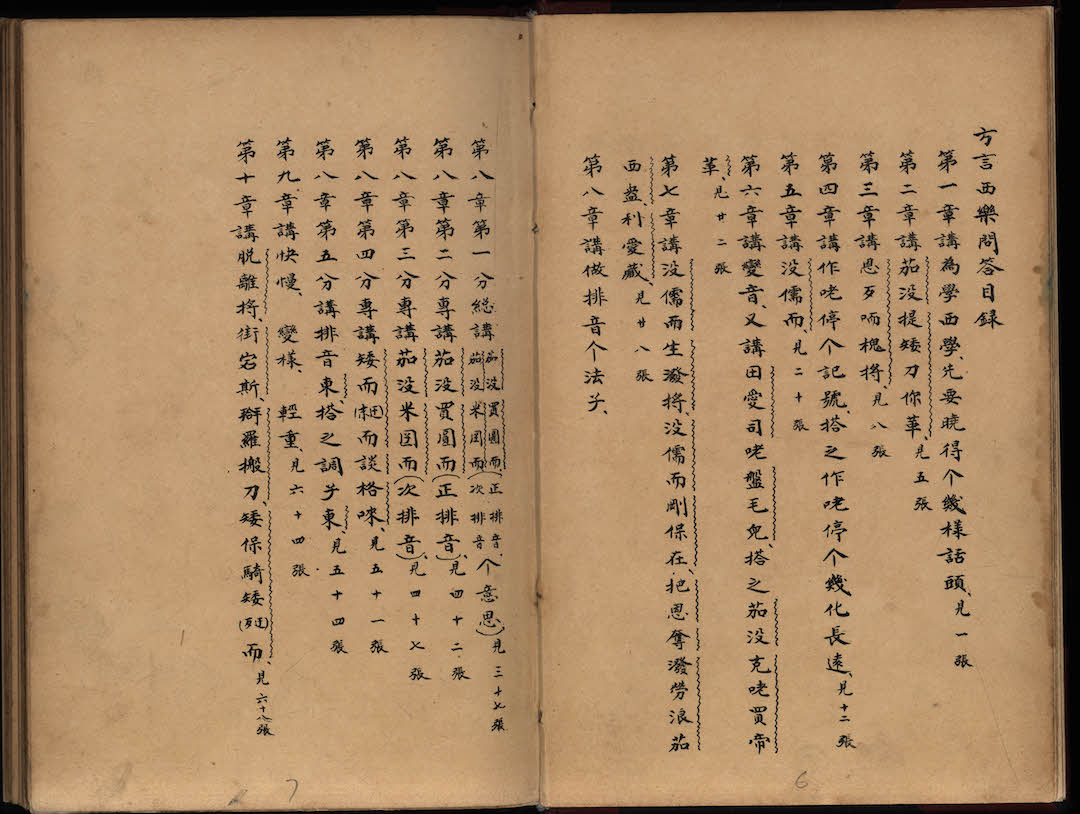 方言西樂問答目錄
第一章講為學西學、先要曉得个幾樣話頭、見一張
第二章講茄没提矮刀你華、見五張
第三章講恩歹啢槐將、見八張
第四章講作咾停个記號、搭之作咾停个幾化長遠、見十二張
第五章講没儒而、見二十張
第六章講變音、又講田愛司咾盤毛皃、搭之茄没克咾買帝
革、見廿二張
第七章講没儒而生潑將、没儒而剛保在、把恩奪潑勞浪茄
西盎利愛蕆、見廿八張
第八章講做排音个法子、
第八章第一分総講茄没買圓而(正排音、茄没米囝而(次排音个意思)、見三十七張
第八章第二分專講茄没買圓而(正排音)、見四十二張
第八章第三分專講茄没米囝而(次排音)、見四十七張
第八章第四分專講矮而而談格唻、見五十一張
第八章第五分講排音東、搭之調子東、見五十四張
第九章講快慢、變樣、輕重、見六十四張
第十章講脱離將、街宕斯、辩羅搬刀、矮保騎矮而、見六十八張
6
7